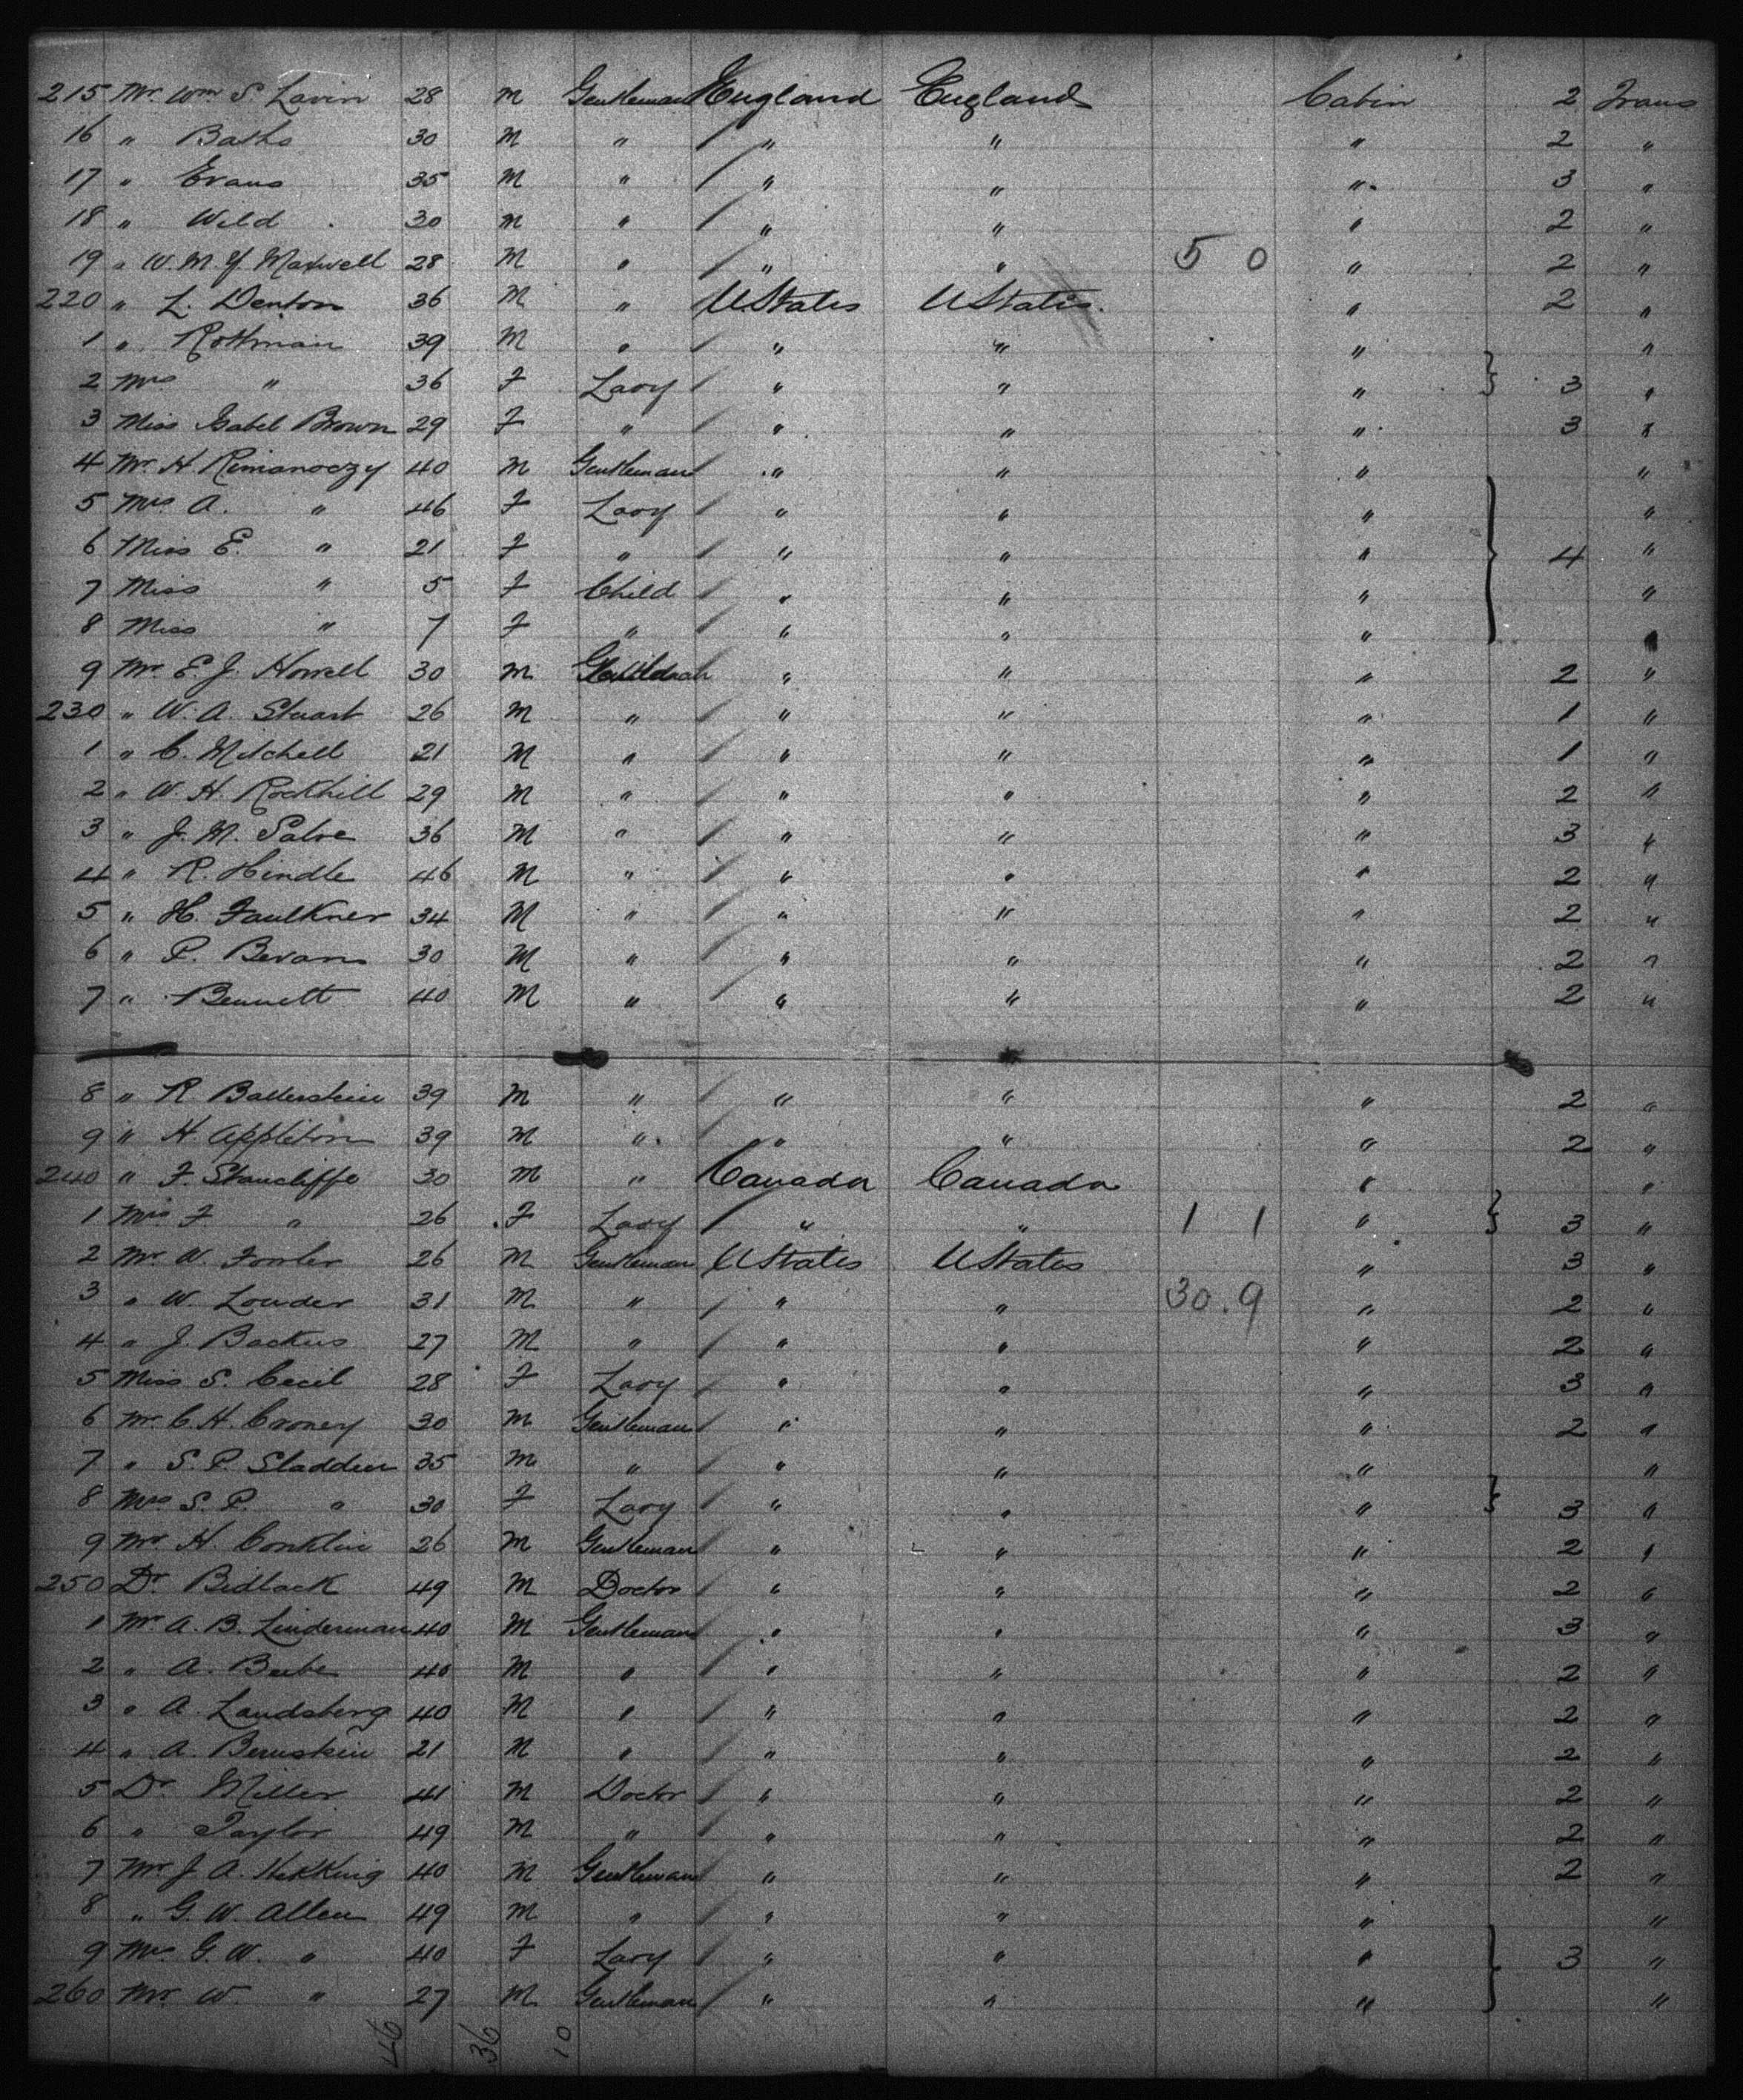 215 Mr. Wm S. Lavin 28 M Gentleman England England Cabin 2 Trans
16 " Baths 30 M " " " " 2 "
17 " Evans 35 M " " " " 3 "
18 " Wild 30 M " " " " 2 "
19 " W. M. Y. Maxwell 28 M " " " 5 0 " 2 "
220 " L. Denton 36 M " U States U States " 2 "
1 " Rothman 39 M " " " " "
2 Mrs " 36 F Lady " " " 3 "
3 Miss Isabel Brown 29 F " " " " 3 "
4 Mr. H. Rimanoczy 40 M Gentleman " " " "
5 Mrs A. " 46 F Lady " " " "
6 Miss E. " 21 F " " " " 4 "
7 Miss " 5 F Child " " " "
8 Miss " 7 F " " " "
9 Mr E. J. Howell 30 M " " " 2 "
230 " W. A. Stuart 26 M " " " " 1 "
1 " C. Mitchell 21 M " " " " 1 "
2 " W. H. Rockhill 29 M " " " " 2 "
3 " J. M. Salve 36 M " " " " 3 "
4 " R. Hindle 46 M " " " " 2 "
5 " H. Faulkner 34 M " " " " 2 "
6 " P. Bevans 30 M " " " " 2 "
7 " Bennett 40 M " " " " 2 "
8 " R Ballerstein 39 M " " " " 2 "
9 " H. Appleton 39 M " " " " 2 "
240 " F. Stancliffe 30 M " Canada Canada " "
1 Mrs F " 26 F Lady " " 1 1 " 3 "
2 Mr W. Fowler 26 M Gentleman U States U States " 3 "
3 " W. Louder 31 M " " " 30 . 9 " 2 "
4 " J. Backus 27 M " " " " 2 "
5 Miss S. Cecil 28 F Lady " " " 3 "
6 Mr. C. H. Croney 30 M Gentleman " " " 2 "
7 " S. P. Sladden 35 M " " " " "
8 Mrs S. P. " 30 F Lady " " " 3 "
9 Mr H. Conklin 26 M Gentleman " " " 2 "
250 Dr Bidlack 49 M Doctor " " " 2 "
1 Mr A. B. Linderman 40 M Gentleman " " " 3 "
2 " A. Beebe 40 M " " " " 2 "
3 " A. Landsberg 40 M " " " " 2 "
4 " A. Bernstein 21 M " " " " 2 "
5 Dr Miller 41 M Doctor " " " 2 "
6 " Taylor 49 M " " " " 2 "
7 Mr J. A. Hekking 40 M Gentleman " " " 2 "
8 " G. W. Allen 49 M " " " " "
9 Mrs G. W. " 40 F Lady " " " 3 "
260 Mr W. " 27 M Gentleman " " " "
46 36 10